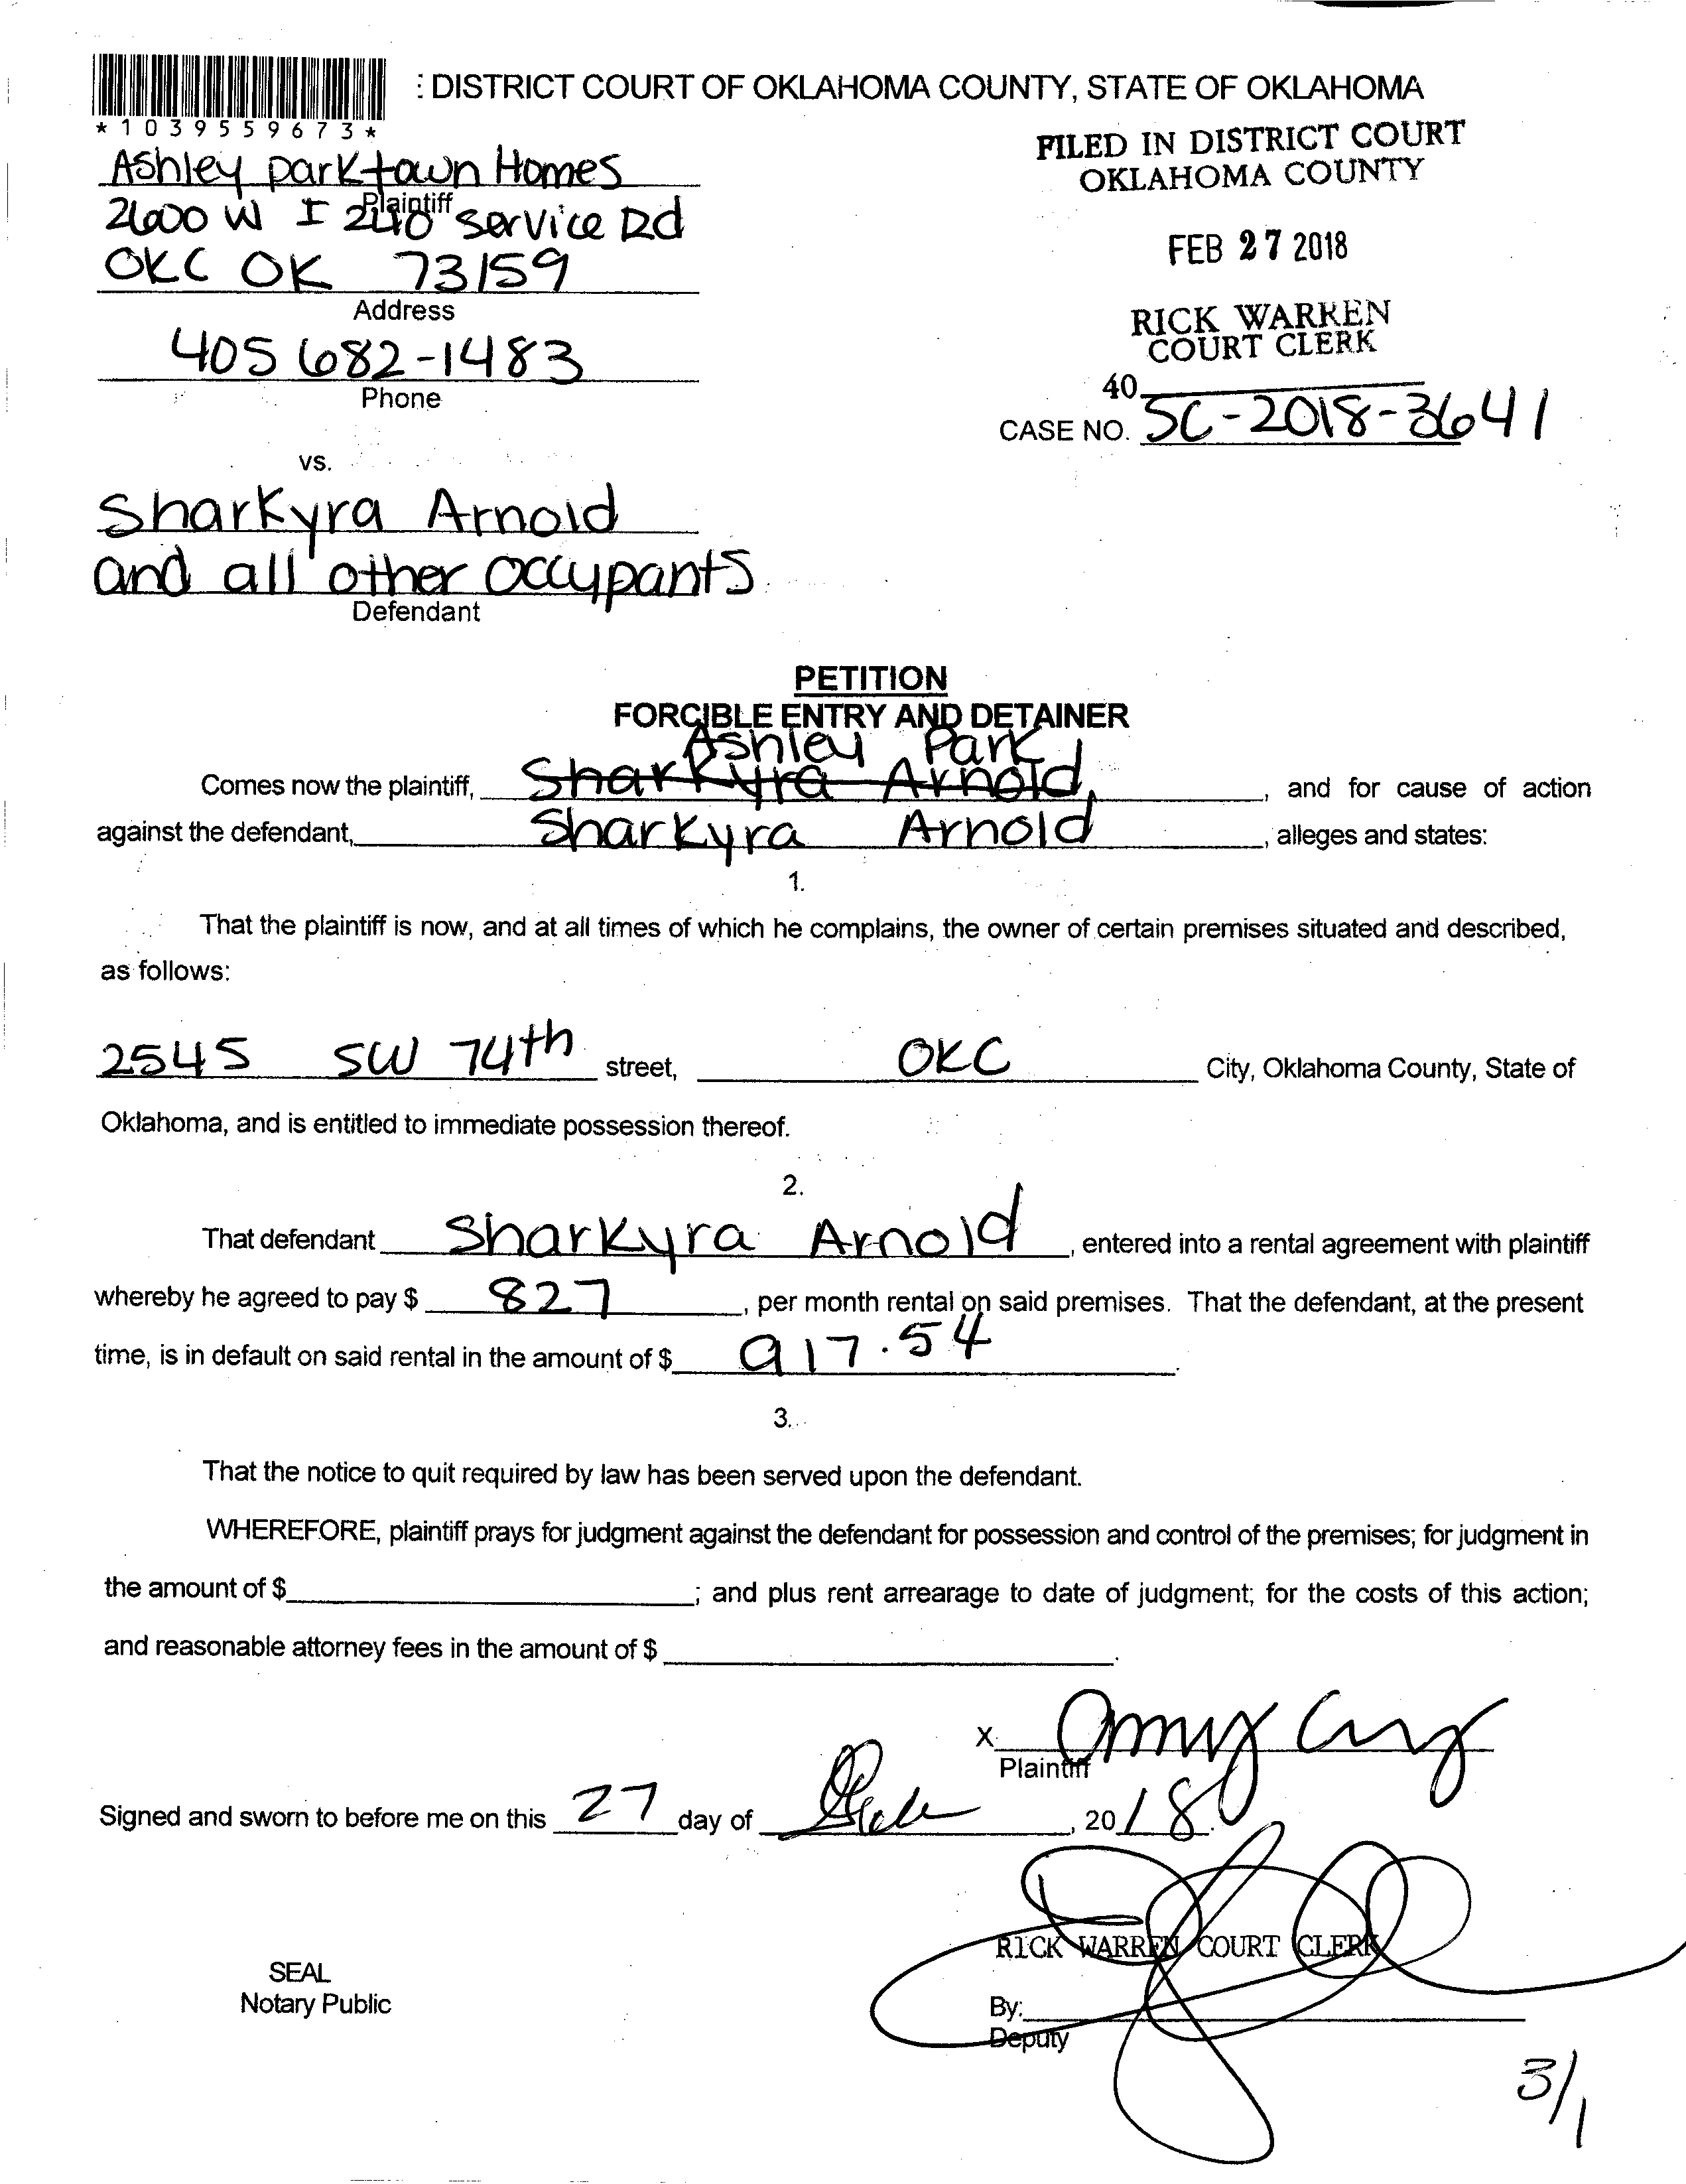 : DISTRICT COURT OF OKLAHOMA COUNTY, STATE OF OKLAHOMA
*1039559673*
FILED IN DISTRICT COURT
OKLAHOMA COUNTY
FEB 27 2018
RICK WARREN
COURT CLERK
40
CASE NO. SC-2018-3641
Ashley park town Homes
Plaintiff
2600 W I 240 Service Rd
OKC OK 73159
Address
405 682-1483
Phone
vs.
Sharkyra Arnold
and all other occupants
Defendant
PETITION
FORCIBLE ENTRY AND DETAINER
Ashley Park
Comes now the plaintiff, Sharkyra Arnold, and for cause of action
against the defendant, Sharkyra Arnold, alleges and states:
1.
That the plaintiff is now, and at all times of which he complains, the owner of certain premises situated and described,
as follows:
2545 SW 74th street, OKC City, Oklahoma County, State of
Oklahoma, and is entitled to immediate possession thereof.
2.
That defendant Sharkyra Arnold, entered into a rental agreement with plaintiff
whereby he agreed to pay $ 827, per month rental on said premises. That the defendant, at the present
time, is in default on said rental in the amount of $ 917.54.
3.
That the notice to quit required by law has been served upon the defendant.
WHEREFORE, plaintiff prays for judgment against the defendant for possession and control of the premises; for judgment in
the amount of $ ; and plus rent arrearage to date of judgment; for the costs of this action;
and reasonable attorney fees in the amount of $ .
X Amy
Plaintiff
Signed and sworn to before me on this 27 day of , 2018.
RICK WARREN COURT CLERK
SEAL
Notary Public
By:
Deputy
3/1